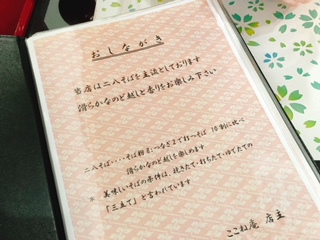 おしながき
当店は二八そばを主流としております
滑らかなのど越しと香りをお楽しみ下さい
二八そば‥‥そば粉とつなぎまで打つそば 10割に比べ
滑らかなのど越しを楽しめます
＊ 美味しいそばの条件は、挽きたて・打ちたて・ゆでたての
「三立て」と言われています
ここね庵 店主